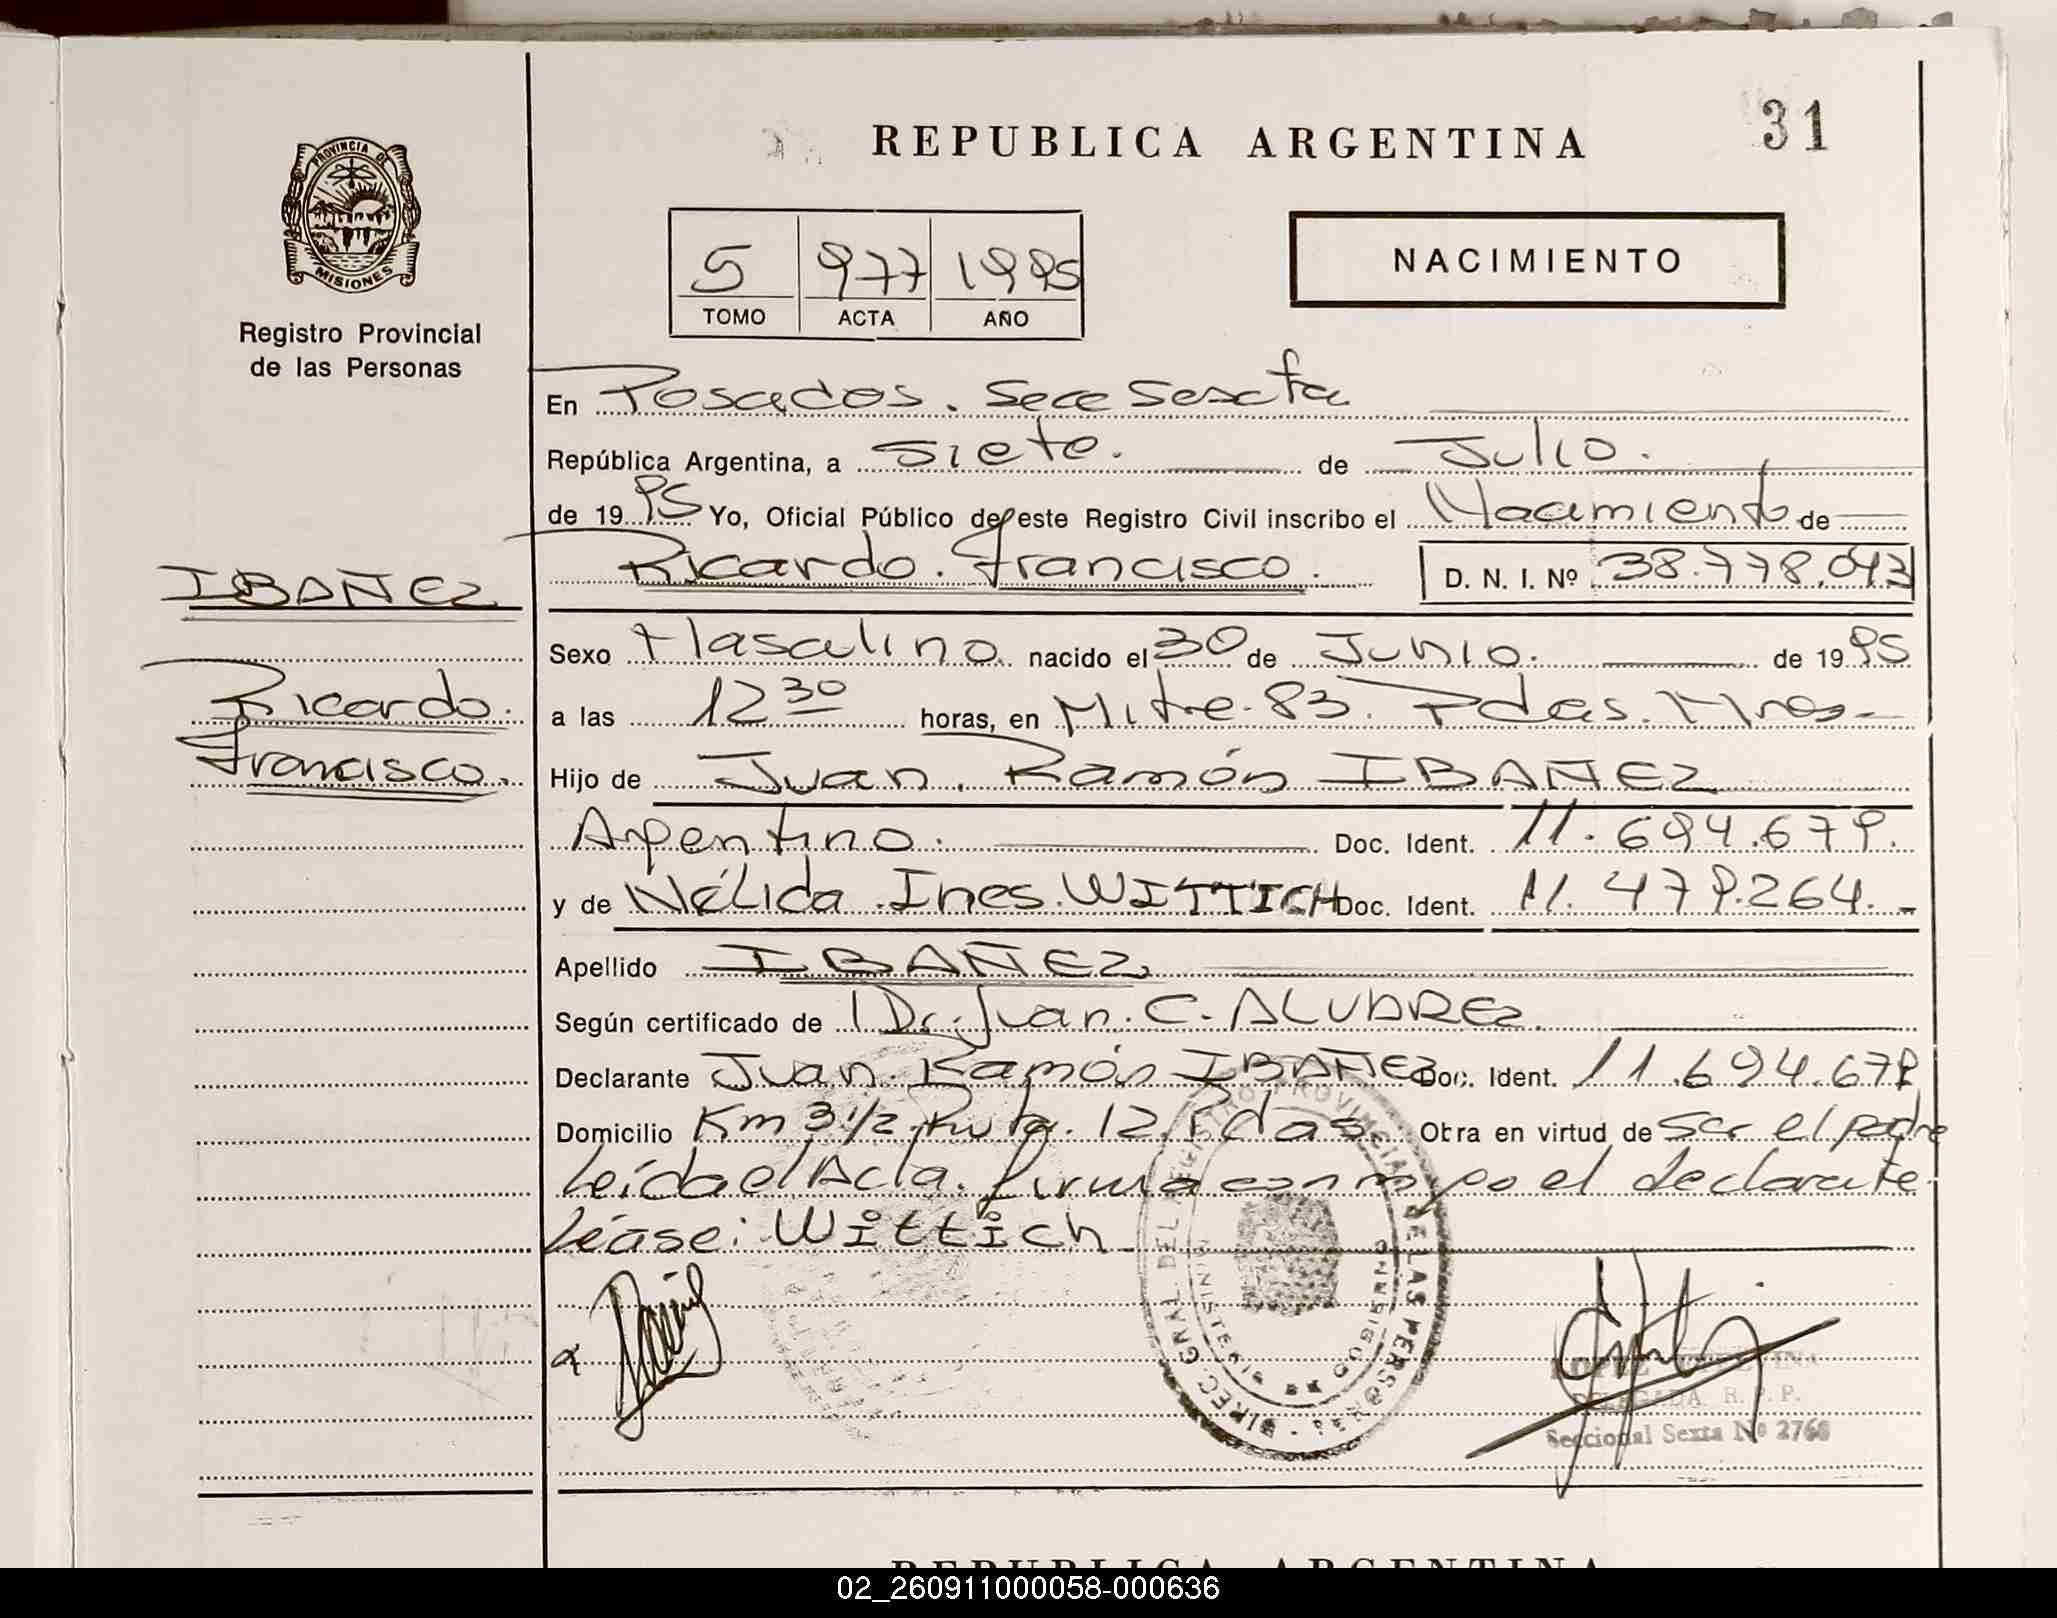 REPUBLICA ARGENTINA
31
PROVINCIA DE
MISIONES
Registro Provincial
de las Personas
5 977 1995
TOMO ACTA AÑO
NACIMIENTO
En Posadas. Secc Sexcta
República Argentina, a siete. de Julio.
de 1995 Yo, Oficial Público de este Registro Civil inscribo el Nacimiento de
Ricardo. Francisco. D. N. I. Nº 38.778.043
IBAÑEZ
Ricardo.
Francisco.
Sexo Masculino nacido el 30 de Junio. de 1995
a las 12 30 horas, en Mitre. 83. Pdas. Mnes-
Hijo de Juan. Ramón IBAÑEZ
Argentino. Doc. Ident. 11.694.679.
y de Nélida. Ines. WITTICH Doc. Ident. 11.479.264.-
Apellido IBAÑEZ
Según certificado de Dr. Juan. C. ALVAREZ
Declarante Juan. Ramón IBAÑEZ Doc. Ident. 11.694.679
Domicilio Km 3 1/2 Ruta. 12. Pdas. Obra en virtud de ser el padre
Leída el Acta. firma conmigo el declarante
Léase: Wittich
DIREC. GRAL. DEL REGISTRO PROVINCIAL DE LAS PERSONAS
MINISTERIO DE GOBIERNO
DELEGADA R. P. P.
Seccional Sexta Nº 2768
REPUBLICA ARGENTINA
02_260911000058-000636